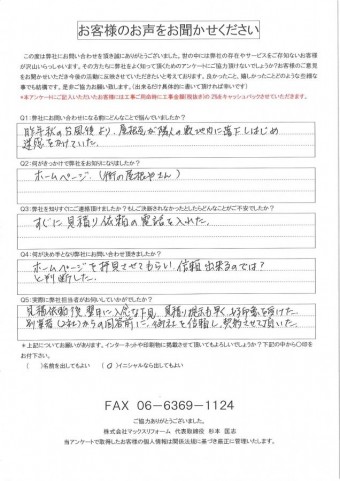 お客様のお声をお聞かせください
この度は弊社にお問い合わせを頂き誠にありがとうございました。世の中には弊社の存在やサービスをご存知ないお客様
が沢山いらっしゃいます。その方たちに弊社をよく知って頂くためのアンケートにご協力頂けないでしょうか?お客様のご意見
をお聞かせいただき今後の活動に反映させていただきたいと考えております。良かったこと、嬉しかったことどのような些細な
事でも結構です。是非ご協力お願い致します。(出来るだけ具体的に書いて頂ければ幸いです)
*本アンケートにご記入いただいたお客様には工事ご用命時に工事金額(税抜き)の2%をキャッシュバックさせていただきます。
Q1:弊社にお問い合わせになる前にどんなことで悩んでいましたか?
昨年秋の台風後より、屋根瓦が隣人の敷地内に落下しはじめ
迷惑をかけていた。
Q2:何がきっかけで弊社をお知りになりましたか?
ホームページ.(街の屋根やさん)
Q3:弊社を知りすぐにご連絡頂けましたか?もしご決断されなかったとしたらどんなことがご不安でしたか?
すぐに見積り依頼の電話を入れた.
Q4:何が決め手となり弊社にお問い合わせ頂きましたか?
ホームページを拝見させてもらい信頼出来るのでは?
と判断した.
Q5:実際に弊社担当者がお伺いしていかがでしたか?
見積依頼後、翌日に入念な下見、見積り提示も早く、好印象を受けた.
別業者(2社)からの回答前に、御社を信頼し、契約させて頂いた.
*上記についてお願いがあります。インターネットや印刷物に掲載させて頂いてもよろしいでしょうか?下記の中から〇印を
お付下さい。
( )名前を出してもよい (〇)イニシャルなら出してもよい
FAX 06-6369-1124
ご協力ありがとうございました。
株式会社マックスリフォーム 代表取締役 杉本 匡志
当アンケートで取得したお客様の個人情報は関係法規に基づき厳正に管理いたします。